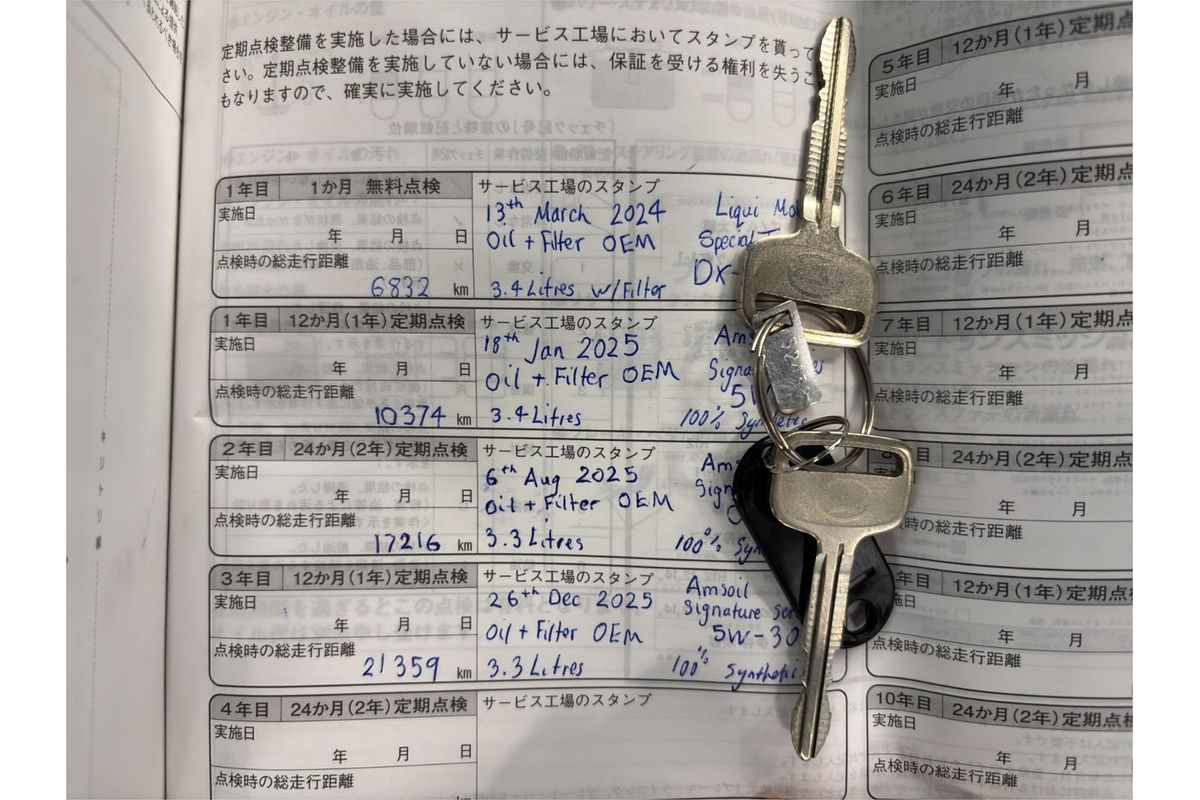 定期点検整備を実施した場合には、サービス工場においてスタンプを貰って
さい。定期点検整備を実施していない場合には、保証を受ける権利を失うこ
もなりますので、確実に実施してください。
1年目 1か月 無料点検 サービス工場のスタンプ
実施日
年 月 日
点検時の総走行距離
6832 km
13th March 2024 Liqui
Oil + Filter OEM
3.4 Litres w/Filter DX-
1年目 12か月(1年)定期点検 サービス工場のスタンプ
実施日
年 月 日
点検時の総走行距離
10374 km
18th Jan 2025
Oil + Filter OEM
3.4 Litres 100%
2年目 24か月(2年)定期点検 サービス工場のスタンプ
実施日
年 月 日
点検時の総走行距離
17216 km
6th Aug 2025
Oil + Filter OEM
3.3 Litres 100%
3年目 12か月(1年)定期点検 サービス工場のスタンプ
実施日
年 月 日
点検時の総走行距離
21359 km
26th Dec 2025 Amsoil
Oil + Filter OEM Signature
5W-30
3.3 Litres 100% Synthetic
4年目 24か月(2年)定期点検 サービス工場のスタンプ
実施日
年 月 日
点検時の総走行距離
5年目 12か月(1年)定期点
実施日
年 月
点検時の総走行距離
6年目 24か月(2年)定期点
実施日
年 月
点検時の総走行距離
7年目 12か月(1年)定期点
実施日
年 月
点検時の総走行距離
24か月(2年)定期点
年 月
時の総走行距離
年目 12か月(1年)定期点
年 月
点検時の総走行距離
10年目 24か月(2年)定期点
実施日
年 月
点検時の総走行距離
キリトリ線